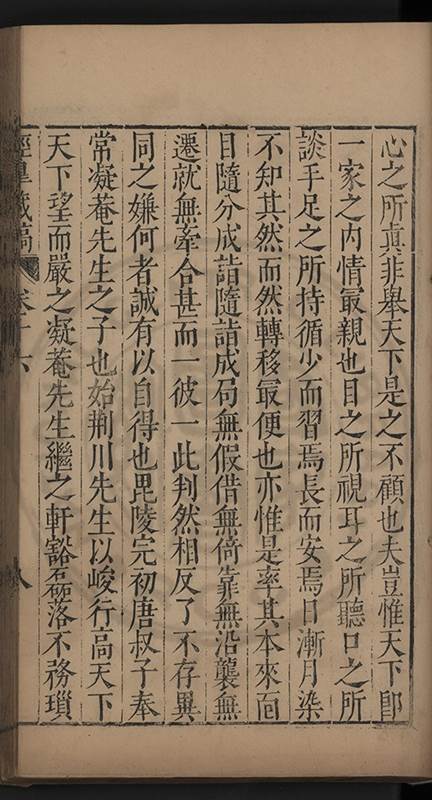 心之所真非舉天下是之不顧也夫豈惟天下卽
一家之內情最親也目之所視耳之所聽口之所
談手足之所持循少而習焉長而安焉日漸月染
不知其然而然轉移最便也亦惟是率其本來面
目隨分成詣隨詣成局無假借無倚靠無沿襲無
遷就無牽合甚而一彼一此判然相反了不存異
同之嫌何者誠有以自得也毘陵完初唐叔子奉
常凝菴先生之子也始荆川先生以峻行高天下
天下望而嚴之凝菴先生繼之軒豁磊落不務瑣
涇臯藏稿 卷十六 八